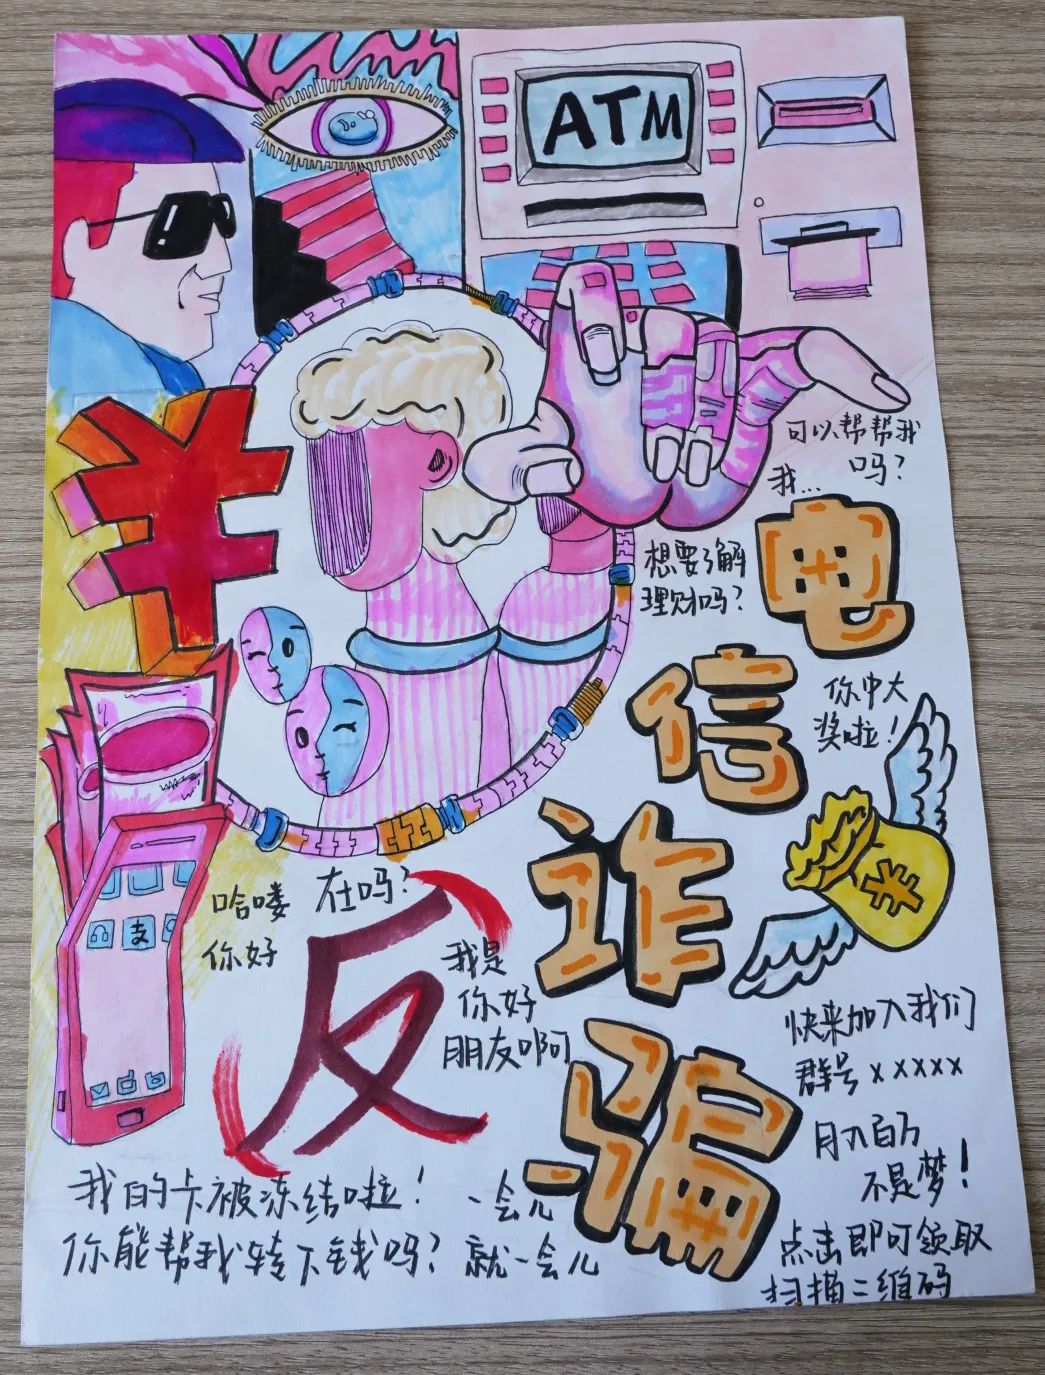 ATM
¥
可以帮帮我
吗？
我…
想要了解
理财吗？
电
信
诈
骗
你中大
奖啦！
¥
支
哈喽
在吗？
你好
反
我是
你好
朋友啊
快来加入我们
群号xxxxx
月入百万
不是梦！
点击即可领取
扫描二维码
我的卡被冻结啦！
你能帮我转下钱吗？
一会儿
就一会儿